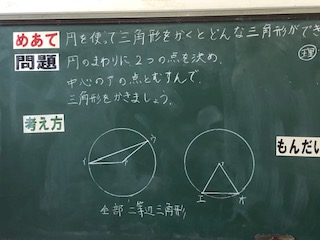 めあて 円を使って三角形をかくとどんな三角形ができ
理
問題 円のまわりに2つの点を決め、
中心のアの点とむすんで、
三角形をかきましょう。
考え方
もんだい
ア
ア
イ
全部 二等辺三角形